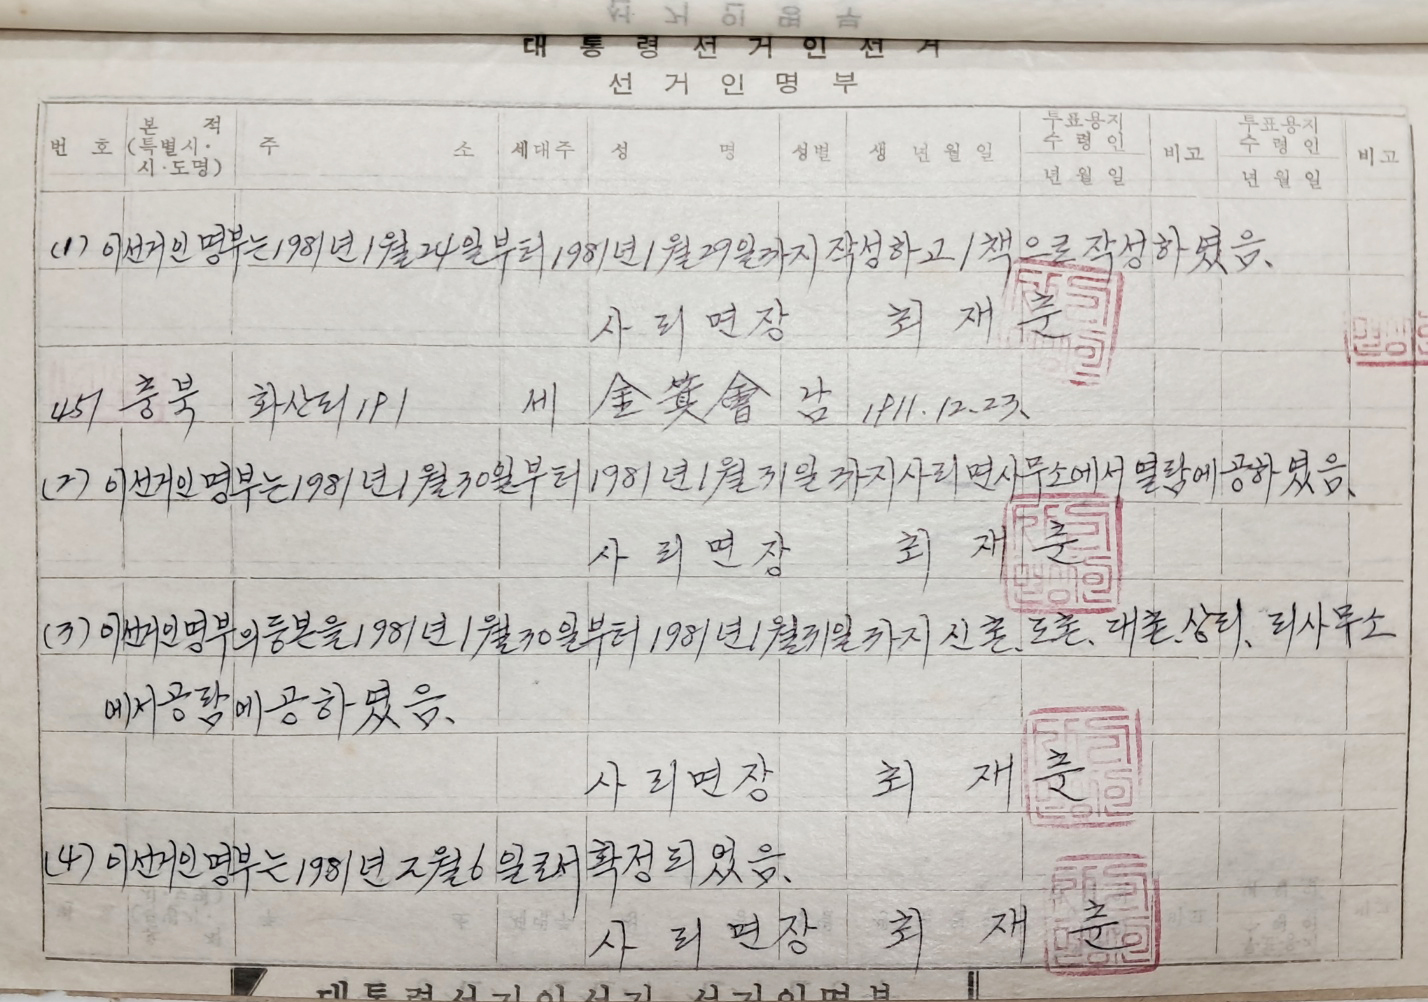 대통령선거인선거
선거인명부
번호 본적 (특별시·시·도명) 주소 세대주 성명 성별 생년월일 투표용지 수령인 년월일 비고 투표용지 수령인 년월일 비고
(1) 이선거인명부는 1981년 1월 24일부터 1981년 1월 29일까지 작성하고 1책으로 작성하였음.
사리면장 최재춘
451 충북 화산리 191 세 金箕會 남 1911.12.23.
(2) 이선거인명부는 1981년 1월 30일부터 1981년 1월 31일까지 사리면사무소에서 열람에 공하였음.
사리면장 최재춘
(3) 이선거인명부의 등본을 1981년 1월 30일부터 1981년 1월 31일까지 신촌, 도촌, 대촌, 상리, 리사무소
에서 공람에 공하였음.
사리면장 최재춘
(4) 이선거인명부는 1981년 2월 6일로서 확정되었음.
사리면장 최재춘
대통령선거인선거 선거인명부